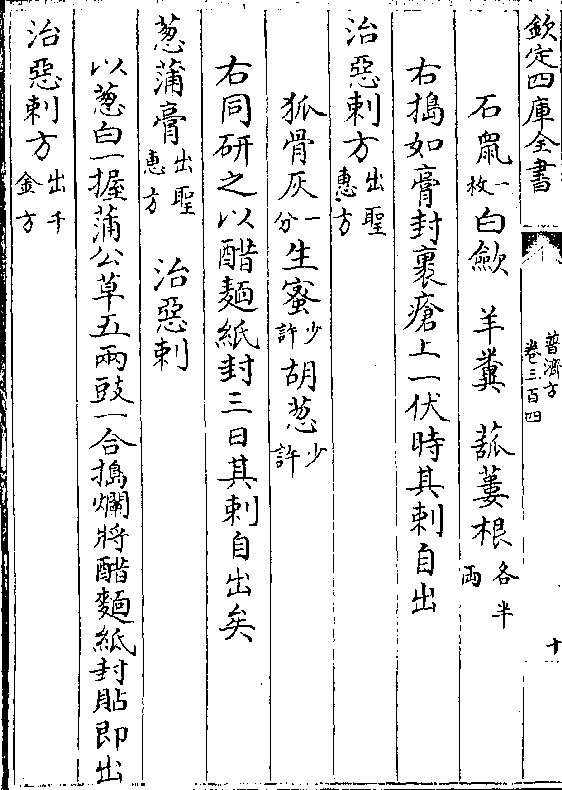 欽定四庫全書
普濟方
卷三百四
十
石䑕一枚白歛 羊糞 菰蔞根各半兩
右搗如膏封裹瘡上一伏時其刺自出
治惡刺方出聖惠方
狐骨灰一分生蜜少許胡葱少許
右同研之以醋麵紙封三日其刺自出矣
葱蒲膏出聖惠方 治惡刺
以葱白一握蒲公草五兩豉一合搗爛將醋麵紙封貼即出
治惡刺方出千金方